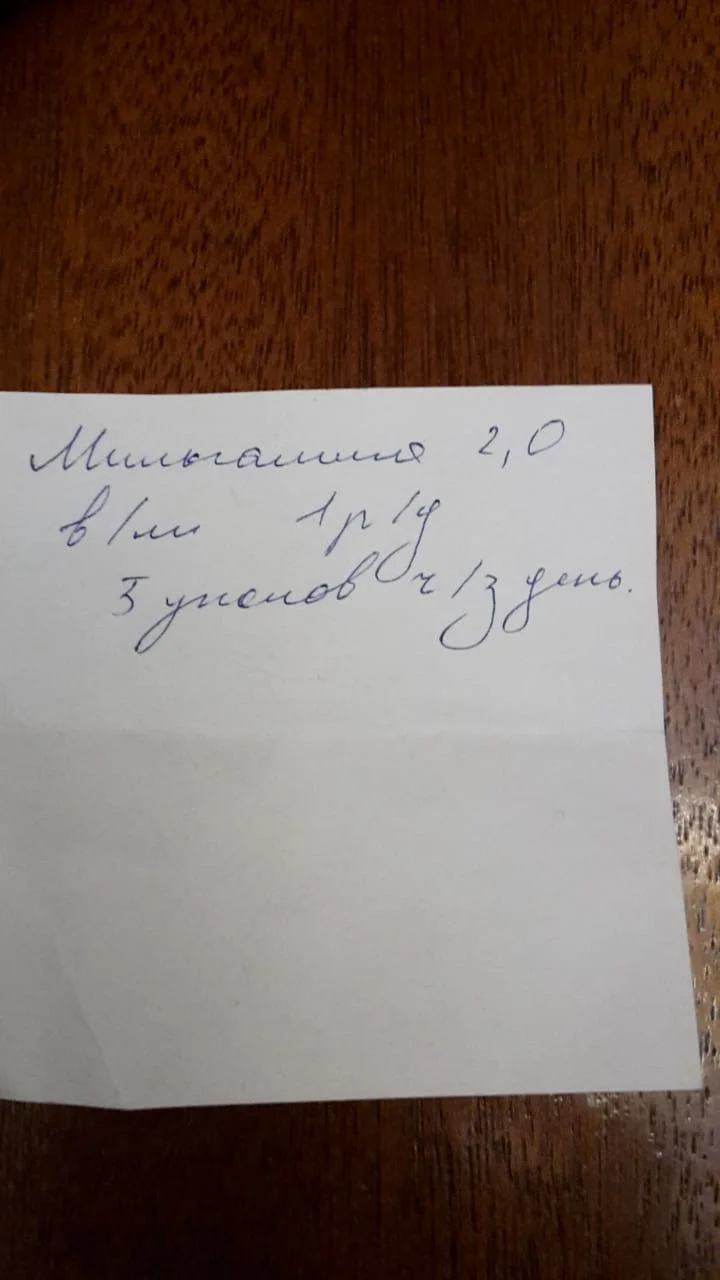 Мильгамма 2,0
в/м 1 р/д
5 уколов ч/з день.